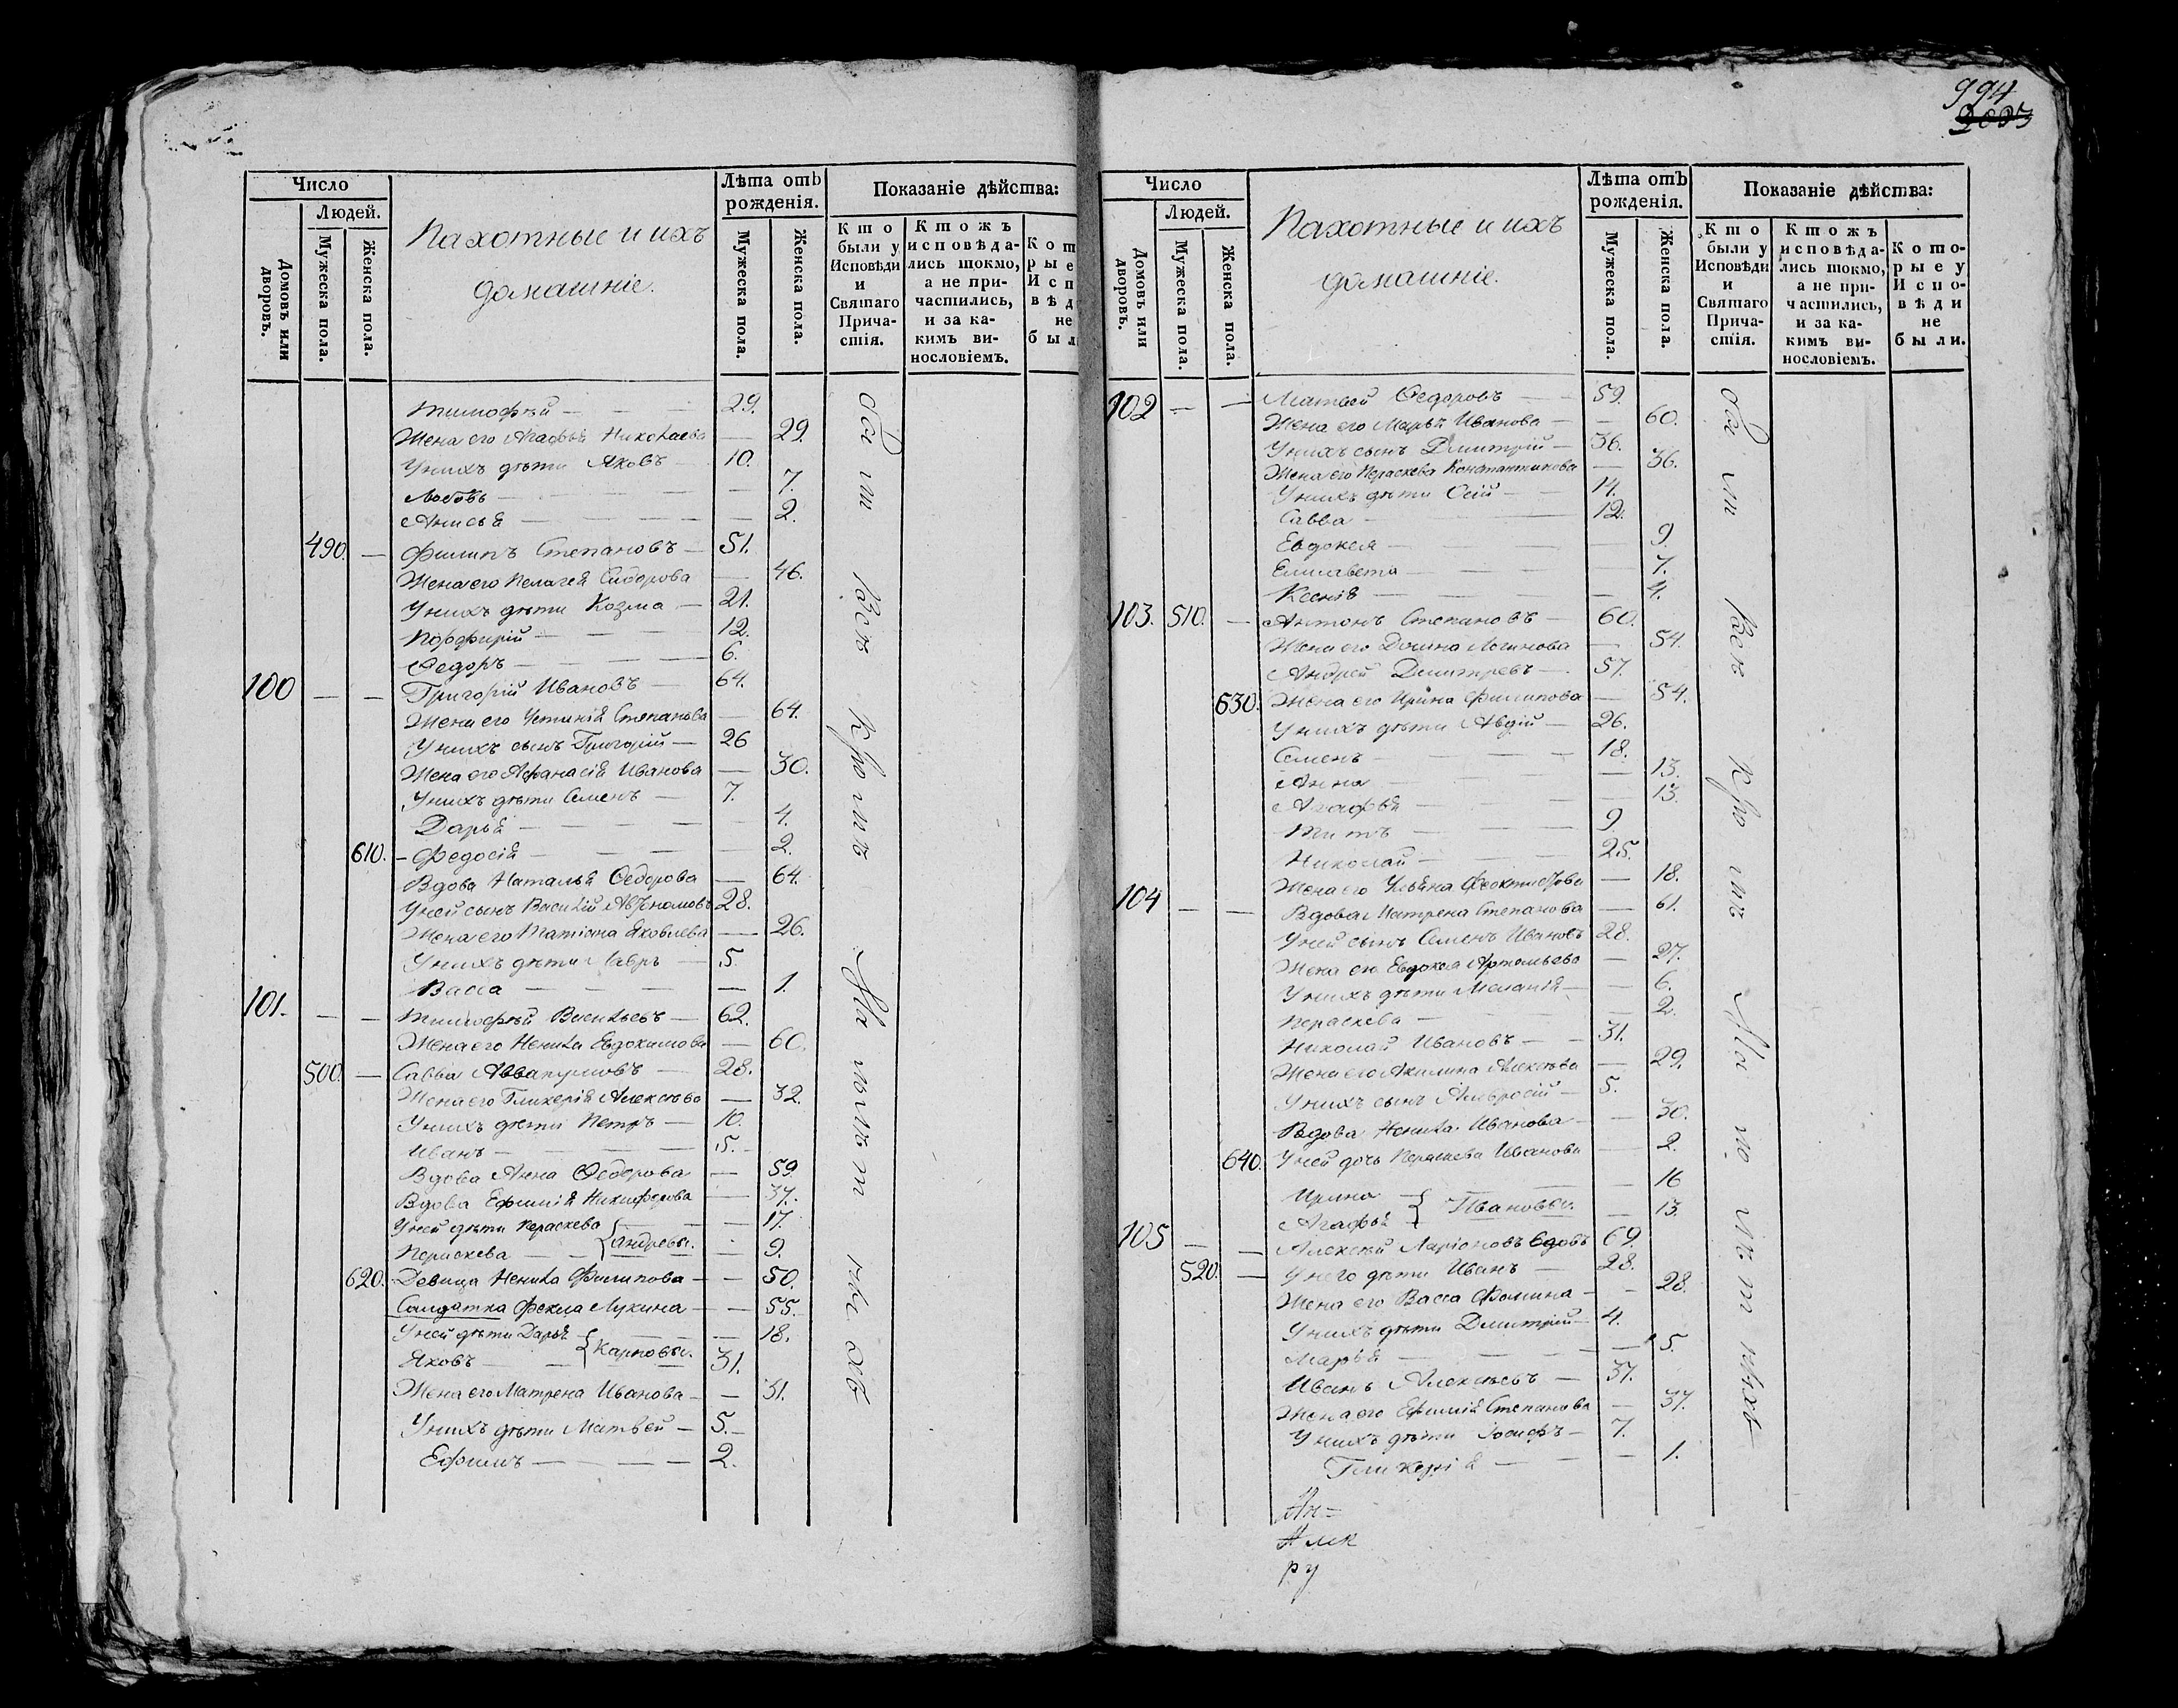 994
Число
Людей.
Домовъ или дворовъ.
Мужеска пола.
Женска пола.
Пахотные и ихъ
домашніе.
Лѣта отъ рожденія.
Мужеска пола.
Женска пола.
Показаніе дѣйства:
Кто были у Исповѣди и Святаго Причастія.
Ктожъ исповѣдались токмо, а не причастились, и за какимъ винословіемъ.
Тимофей — 29.
Жена его Агафья Николаева — 29.
У нихъ дѣти Яковъ — 10.
Любовь — 7.
Анисья — 2.
490. — Филипъ Степановъ — 51.
Жена его Пелагея Сидорова — 46.
У нихъ дѣти Козма — 21.
Порфирій — 12.
Федоръ — 6.
100 — — Григорій Ивановъ — 64.
Жена его Устинія Степанова — 64.
У нихъ сынъ Григорій — 26
Жена его Афанасія Иванова — 30.
У нихъ дѣти Семенъ — 7.
Дарья — 4.
610. — Федосія — 2.
Вдова Наталья Федорова — 64.
У ней сынъ Василій Автономовъ 28.
Жена его Татіана Яковлева — 26.
У нихъ дѣти Лавръ — 5.
Васса — 1.
101. — — Тимофѣй Васильевъ — 62.
Жена его Ненила Евдокимова — 60.
500. — Савва Аввакумовъ — 28.
Жена его Гликерія Алексѣева — 32.
У нихъ дѣти Петръ — 10.
Иванъ — 5.
Вдова Анна Федорова — 59
Вдова Ефимія Никифорова — 37.
У ней дѣти Параскева — 17.
Параскева { Андревы. — 9.
620. Девица Ненила Филипова — 50.
Солдатка Фекла Лукина — 55.
У ней дѣти Дарья — 18.
Яковъ { Карповы. 31.
Жена его Матрена Иванова — 31.
У нихъ дѣти Матвей — 5.
Ефимъ — 2.
Число
Людей.
Домовъ или дворовъ.
Мужеска пола.
Женска пола.
Пахотные и ихъ
домашніе.
Лѣта отъ рожденія.
Мужеска пола.
Женска пола.
Показаніе дѣйства:
Кто были у Исповѣди и Святаго Причастія.
Ктожъ исповѣдались токмо, а не причастились, и за какимъ винословіемъ.
Которые у Исповѣди не были.
102 — — Матвей Федоровъ — 59.
Жена его Марья Иванова — 60.
У нихъ сынъ Дмитрій — 36.
Жена его Параскева Константинова — 36.
У нихъ дѣти Осій — 14.
Савва — 12.
Евдокея — 9.
Елисавета — 7.
Ксенія — 4.
103. 510. — Антонъ Степановъ — 60.
Жена его Домна Логинова — 54.
Андрей Дмитревъ — 57.
630. Жена его Ирина Филипова — 54.
У нихъ дѣти Авдій — 26.
Семенъ — 18.
Анна — 13.
Агафья — 13.
Титъ — 9
Николай — 25.
Жена его Ульяна Феоктистова — 18.
104 — — Вдова Матрена Степанова — 61.
У ней сынъ Семенъ Ивановъ 28.
Жена его Евдокея Артемьева — 27.
У нихъ дѣти Меланія — 6.
Параскева — 2.
Николай Ивановъ — 31.
Жена его Акилина Алексѣева — 29.
У нихъ сынъ Амвросій — 5.
Вдова Ненила Иванова — 30.
640. У ней дочь Параскева Иванова — 2.
Ирина — 16
Агафья { Ивановы. — 13.
105 — — Алексѣй Ларіоновъ вдовъ 69.
520. — У него дѣти Иванъ — 28.
Жена его Васса Фомина — 28.
У нихъ дѣти Дмитрій — 4.
Марья — 5.
Иванъ Алексѣевъ — 37.
Жена его Ефимія Степанова — 37.
У нихъ дѣти Іосифъ — 7.
Гликерія — 1.